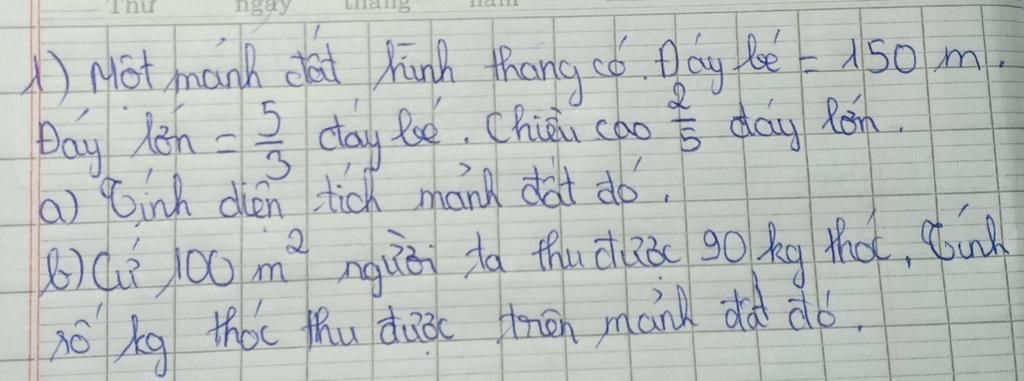 Thứ ngày tháng năm
1) Một mảnh đất hình thang có. Đáy bé = 150 m.
Đáy lớn = 5/3 đáy bé. Chiều cao 2/5 đáy lớn.
a) Tính diện tích mảnh đất đó.
b) Cứ 100 m² người ta thu được 90 kg thóc, Tính
số kg thóc thu được trên mảnh đất đó.